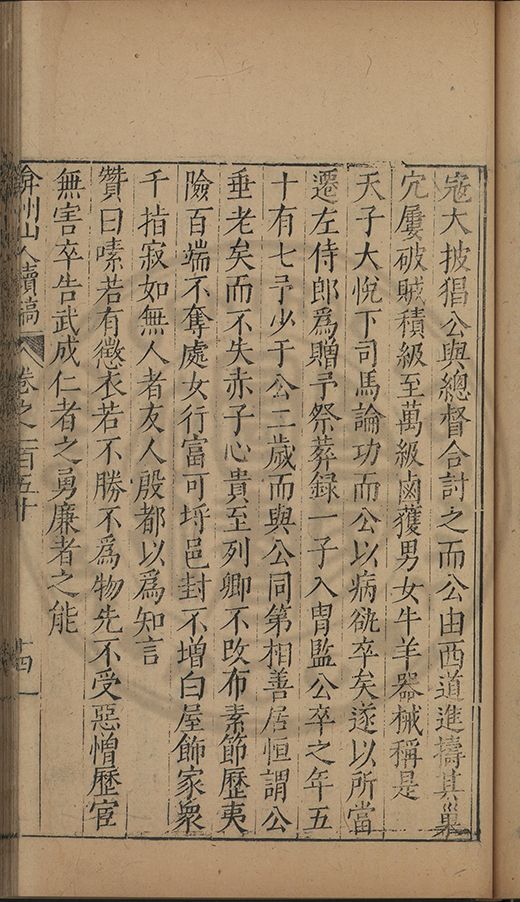 寇大披猖公與總督合討之而公由西道進擣其巢
穴屢破賊積級至萬級鹵獲男女牛羊器械稱是
天子大悅下司馬論功而公以病欬卒矣遂以所當
遷左侍郎爲贈予祭葬録一子入胄監公卒之年五
十有七予少于公二歲而與公同第相善居恒謂公
垂老矣而不失赤子心貴至列卿不改布素節歷夷
險百端不奪處女行富可埒邑封不增白屋飾家衆
千指寂如無人者友人殷都以爲知言
贊曰嗉若有懲衣若不勝不爲物先不受惡憎歷宦
無害卒告武成仁者之勇廉者之能
弇州山人續稿 卷之一百五十 十四